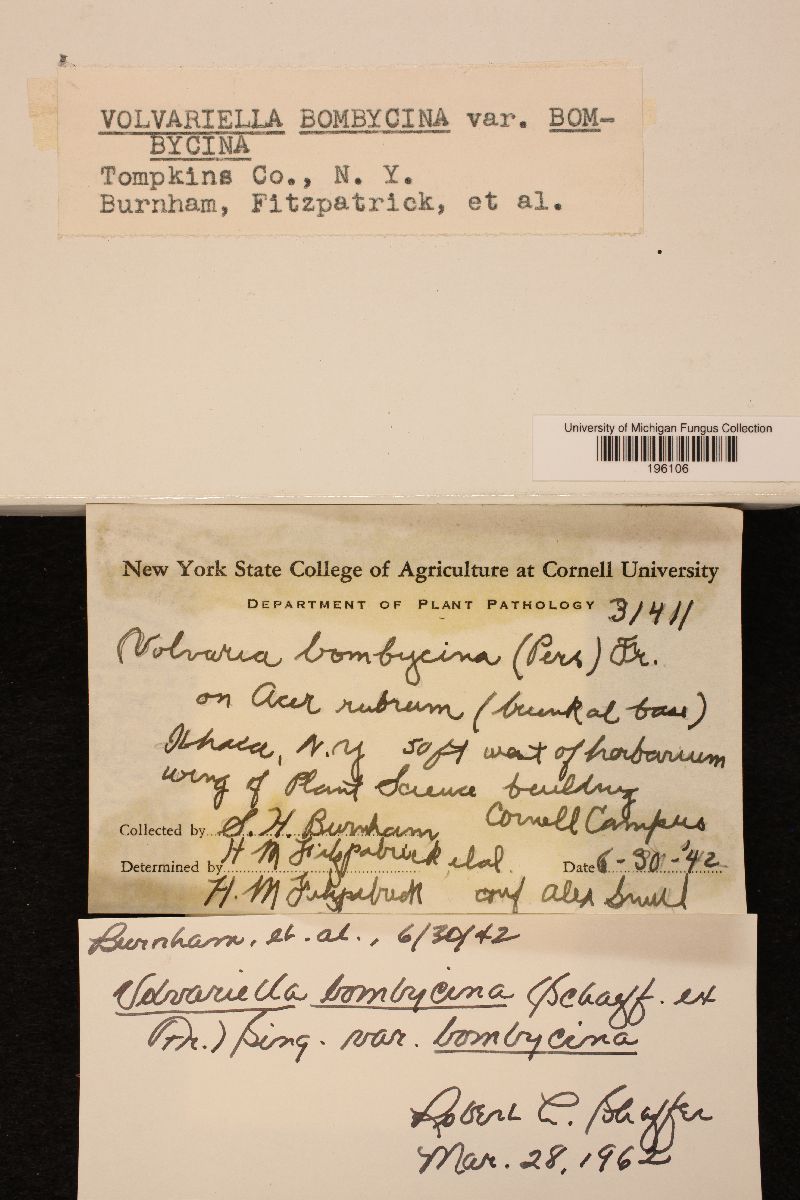 VOLVARIELLA BOMBYCINA var. BOM-
BYCINA
Tompkins Co., N. Y.
Burnham, Fitzpatrick, et al.
University of Michigan Fungus Collection
196106
New York State College of Agriculture at Cornell University
DEPARTMENT OF PLANT PATHOLOGY 31411
Volvaria bombycina (Pers) Fr.
on Acer rubrum (trunk at base)
Ithaca, N.Y 50 ft west of herbarium
wing of Plant Science building
Collected by S. H. Burnham Cornell Campus
H M Fitzpatrick, et al.
Determined by Date 6-30-'42
H. M Fitzpatrick conf Alex Smith
Burnham, et. al., 6/30/42
Volvariella bombycina (Schaeff. ex
Fr.) Sing. var. bombycina
Robert L. Shaffer
Mar. 28, 1962